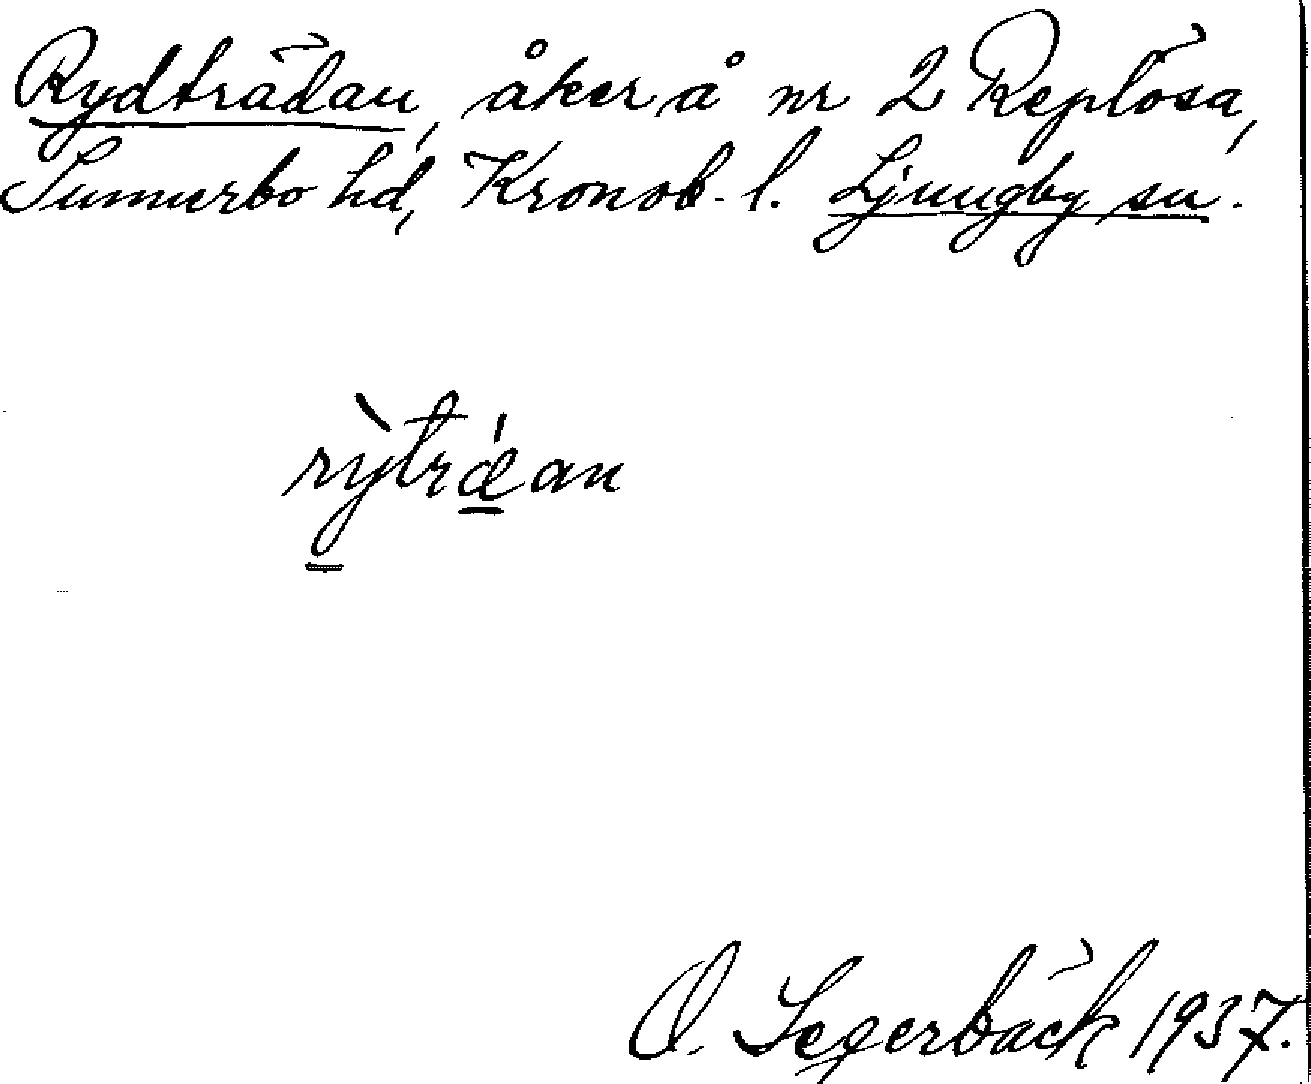 Rydträdan, åker å nr 2 Replösa,
Sunnerbo hd, Kronob. l. Ljungby sn.
rỳtrǽan
O. Segerbäck 1937.